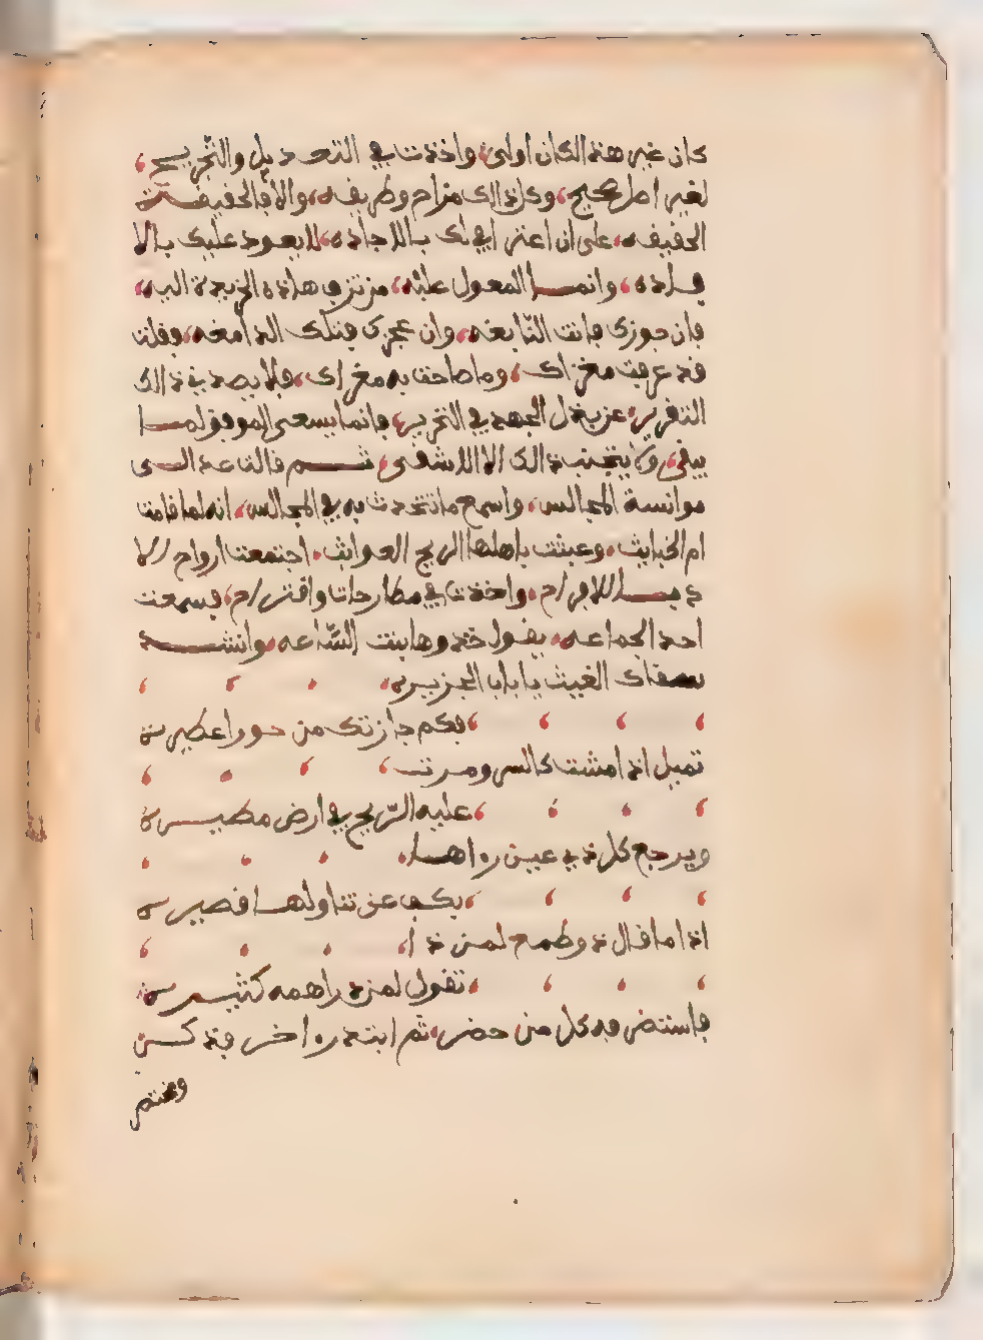 كان غير هذا لكان اولى، واخذت في التعديل والتجريح،
لغير اصل صحيح، وكل ذالك مزاح وظريفه، والا فالحقيقة
الحقيقه، على ان اعترافي لك بالاجاده، لا يعود عليك بالا
فاده، وانمــا المعول عليه، من تزف هاذه الخريدة اليه،
فان جوزى فانت النابغه، وان عجزى فتلك الدامغه، فقلت
قد عرفت مغزاك، وما صاحت به مغراك، فلا يصدني ذالك
التقرير، عن بذل الجهد في التحرير، فانما يسعى الموفق لمــا
يبقى، ولا يتجنب ذالك الا الاشقى، ثــم قالت عد الــى
موانسة المجالس، واسمع ما تتحدث به في المجالس، انه لما قامت
ام الخبايث، وعبثت باهلها الريح العوايث، اجتمعت ارواح الا
دبــا للافراح، واخذت في مطارحات واقتراح، فسمعت
احد الجماعه، يقول خذوها بنت الساعه، وانشــد
سقاك الغيث يا باب الجزيره،
فكم جازتك من حورا عطيره
تميل اذا مشت كالسرو مرت،
عليه الريح في ارض مطيــره
ويرجع كل ذي عين رءاهــا،
بكف عن تناولهــا قصيره
اذا ما قال ذو طمع لمن ذا،
تقول لمن دراهمه كثيــره
فاستضرفه كل من حضر، ثم ابتدره اخر قد كــن